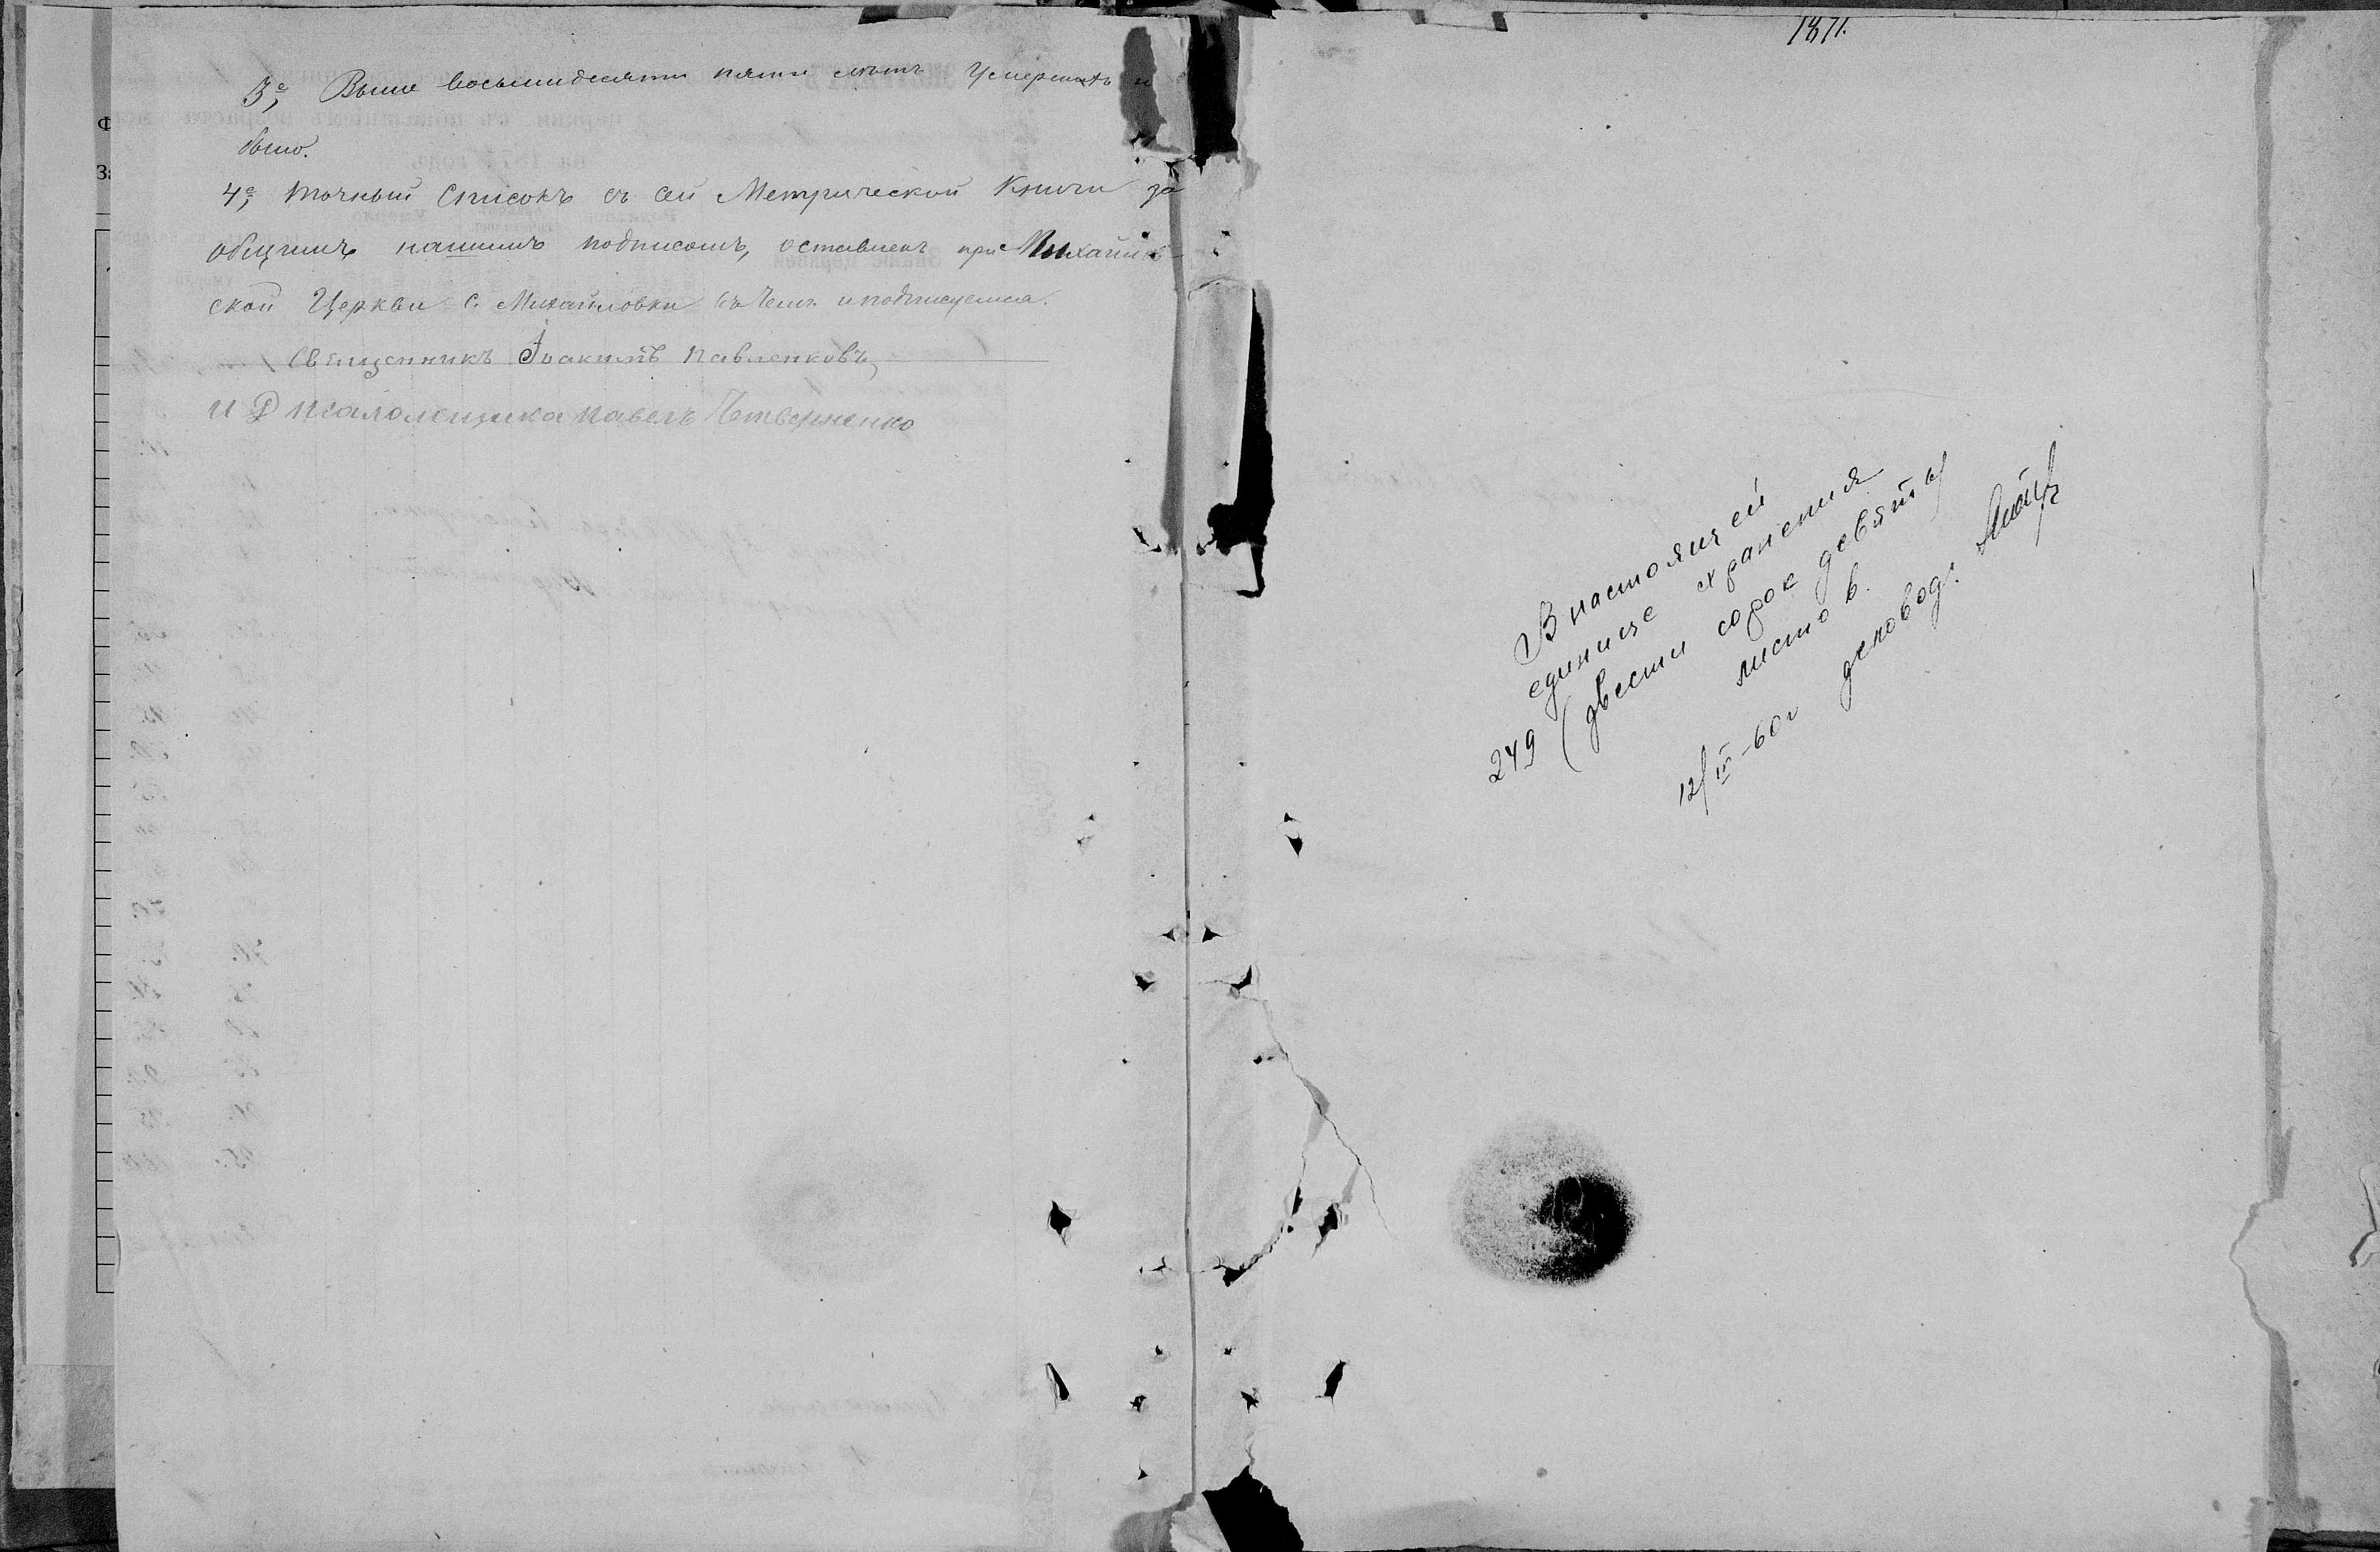 3е, Выше восьмидесяти пяти лѣтъ Умершихъ н
было.
4е, точный Списокъ съ сей Метрической Книги за
общимъ нашимъ подписомъ, оставленъ при Михайлов-
ской Церкви С. Михайловки въ чемъ и подписуемся.
Священникъ Іоакимъ Павленковъ,
И Д псаломщика Павелъ Четверженко
1871.
В настоящей
единице хранения
249 (двести сорок девять)
листов.
12/IV-60г деловод.